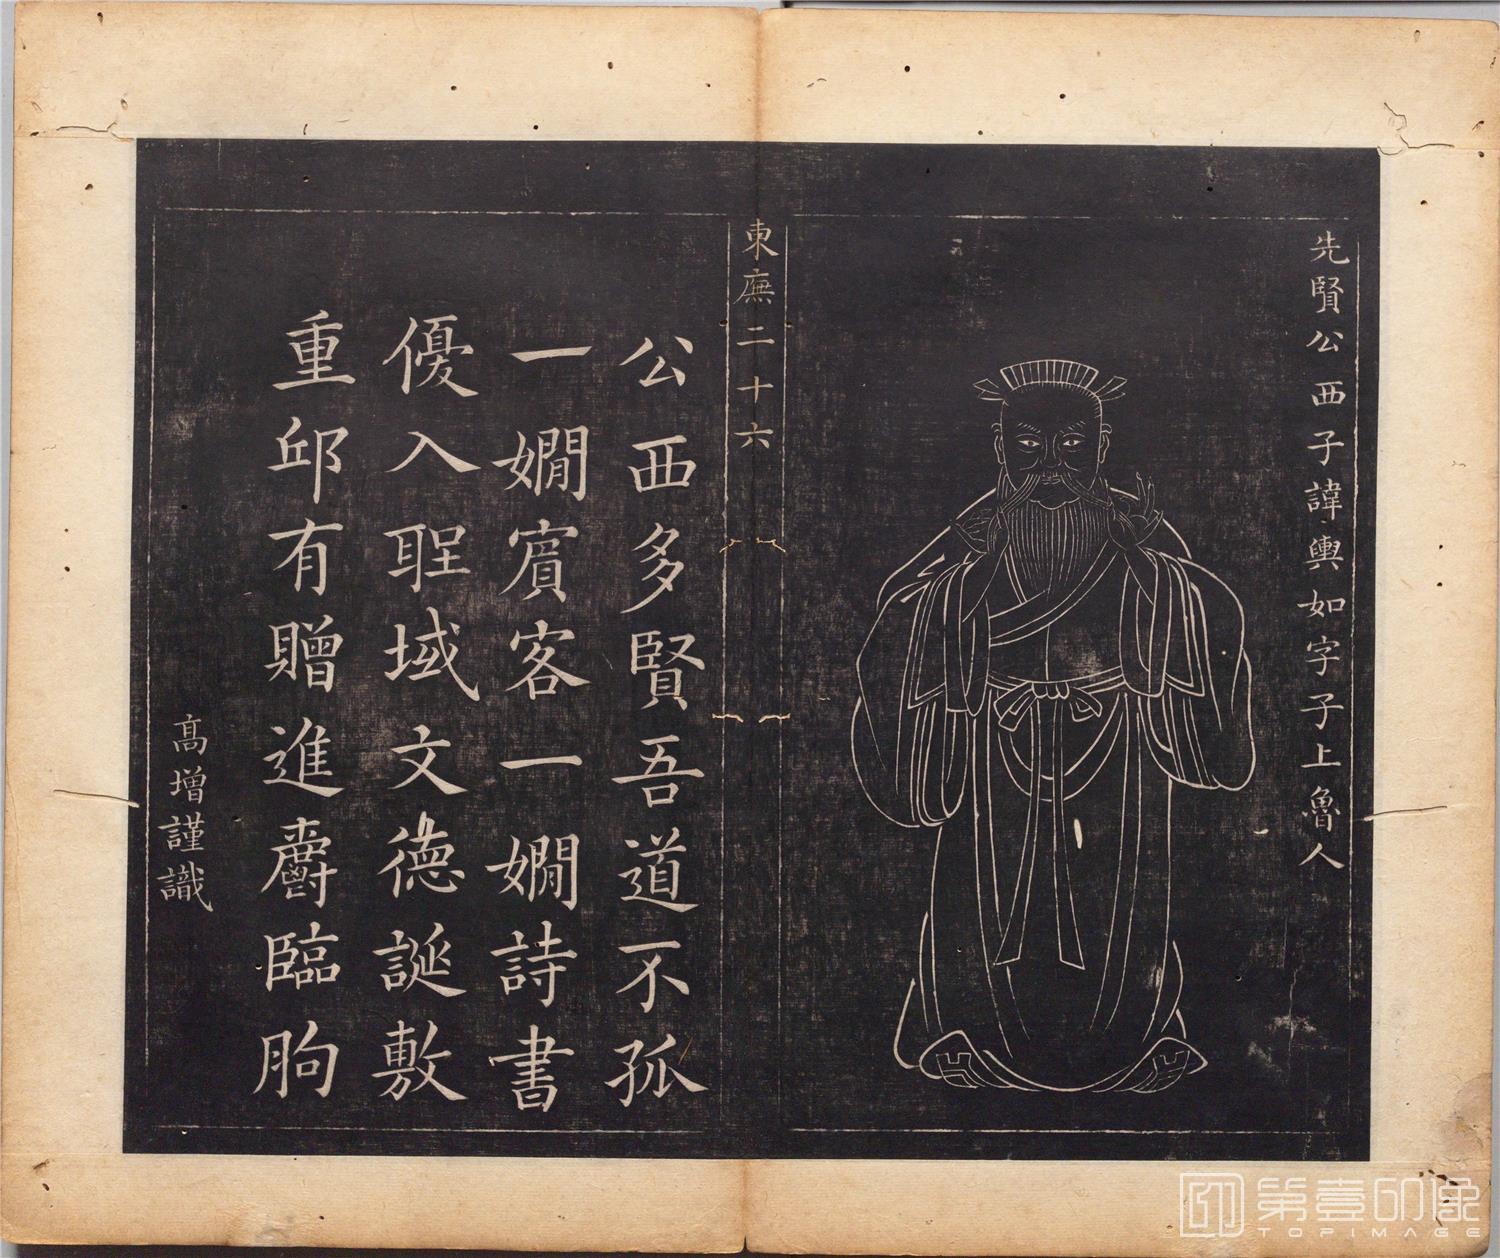 先賢公西子諱輿如字子上魯人
東廡二十六
公西多賢吾道不孤
一嫺賔客一嫺詩書
優入聖域文德誕敷
重邱有贈進爵臨朐
高增謹識
第壹印像
TOPIMAGE